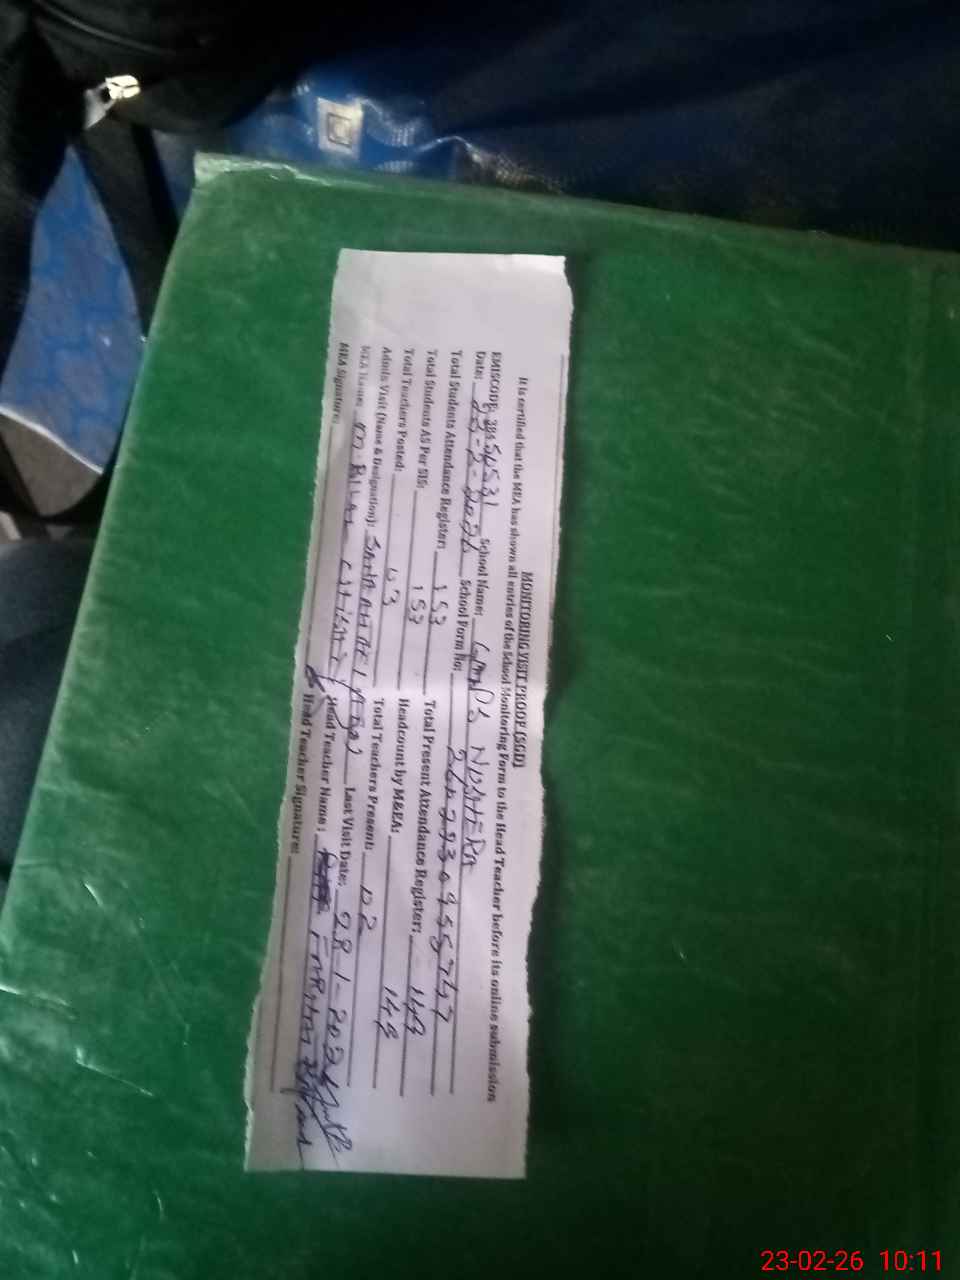 MONITORING VISIT PROOF (SGD)
It is certified that the MEA has shown all entries of the School Monitoring Form to the Head Teacher before its online submission
EMISCODE: 38450531 School Name: GMPS NUSHERA
Date: 23-2-2026 School Form No:
Total Students Attendance Register: 153 Total Present Attendance Register: 149
Total Students AS Per SIS: 153 Headcount by M&EA: 148
Total Teachers Posted: 03 Total Teachers Present: 02
Admin Visit (Name & Designation): Last Visit Date: 28-1-2026
MEA Name: M. BILAL Head Teacher Name:
MEA Signature: Head Teacher Signature:
23-02-26 10:11